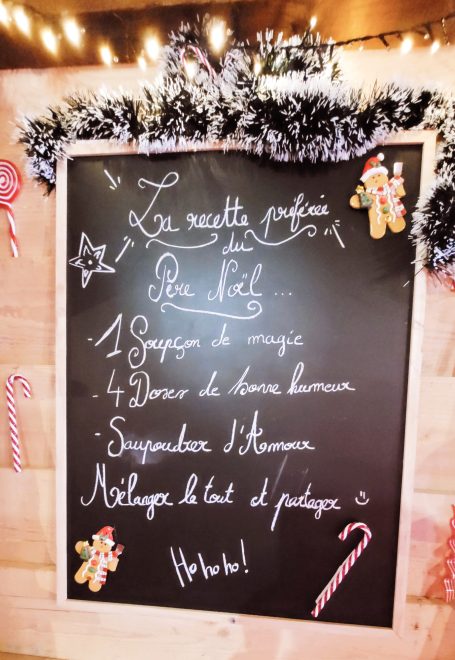 La recette préférée
du
Père Noël...
- 1 Soupçon de magie
- 4 Doses de bonne humeur
- Saupoudrer d'Amour
Mélanger le tout et partager :)
Ho ho ho!